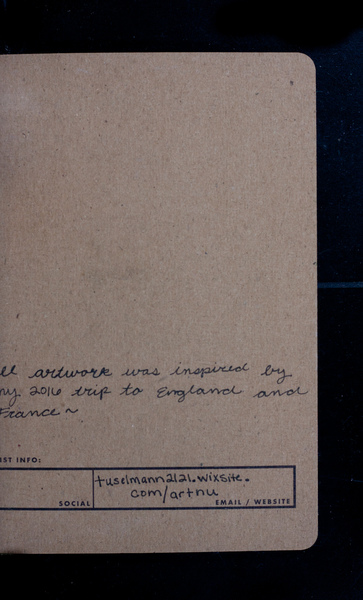 ll artwork was inspired by
ny 2016 trip to England and
France ~
IST INFO:
tuselmann2121.wixsite.
com/artnu
SOCIAL
EMAIL / WEBSITE